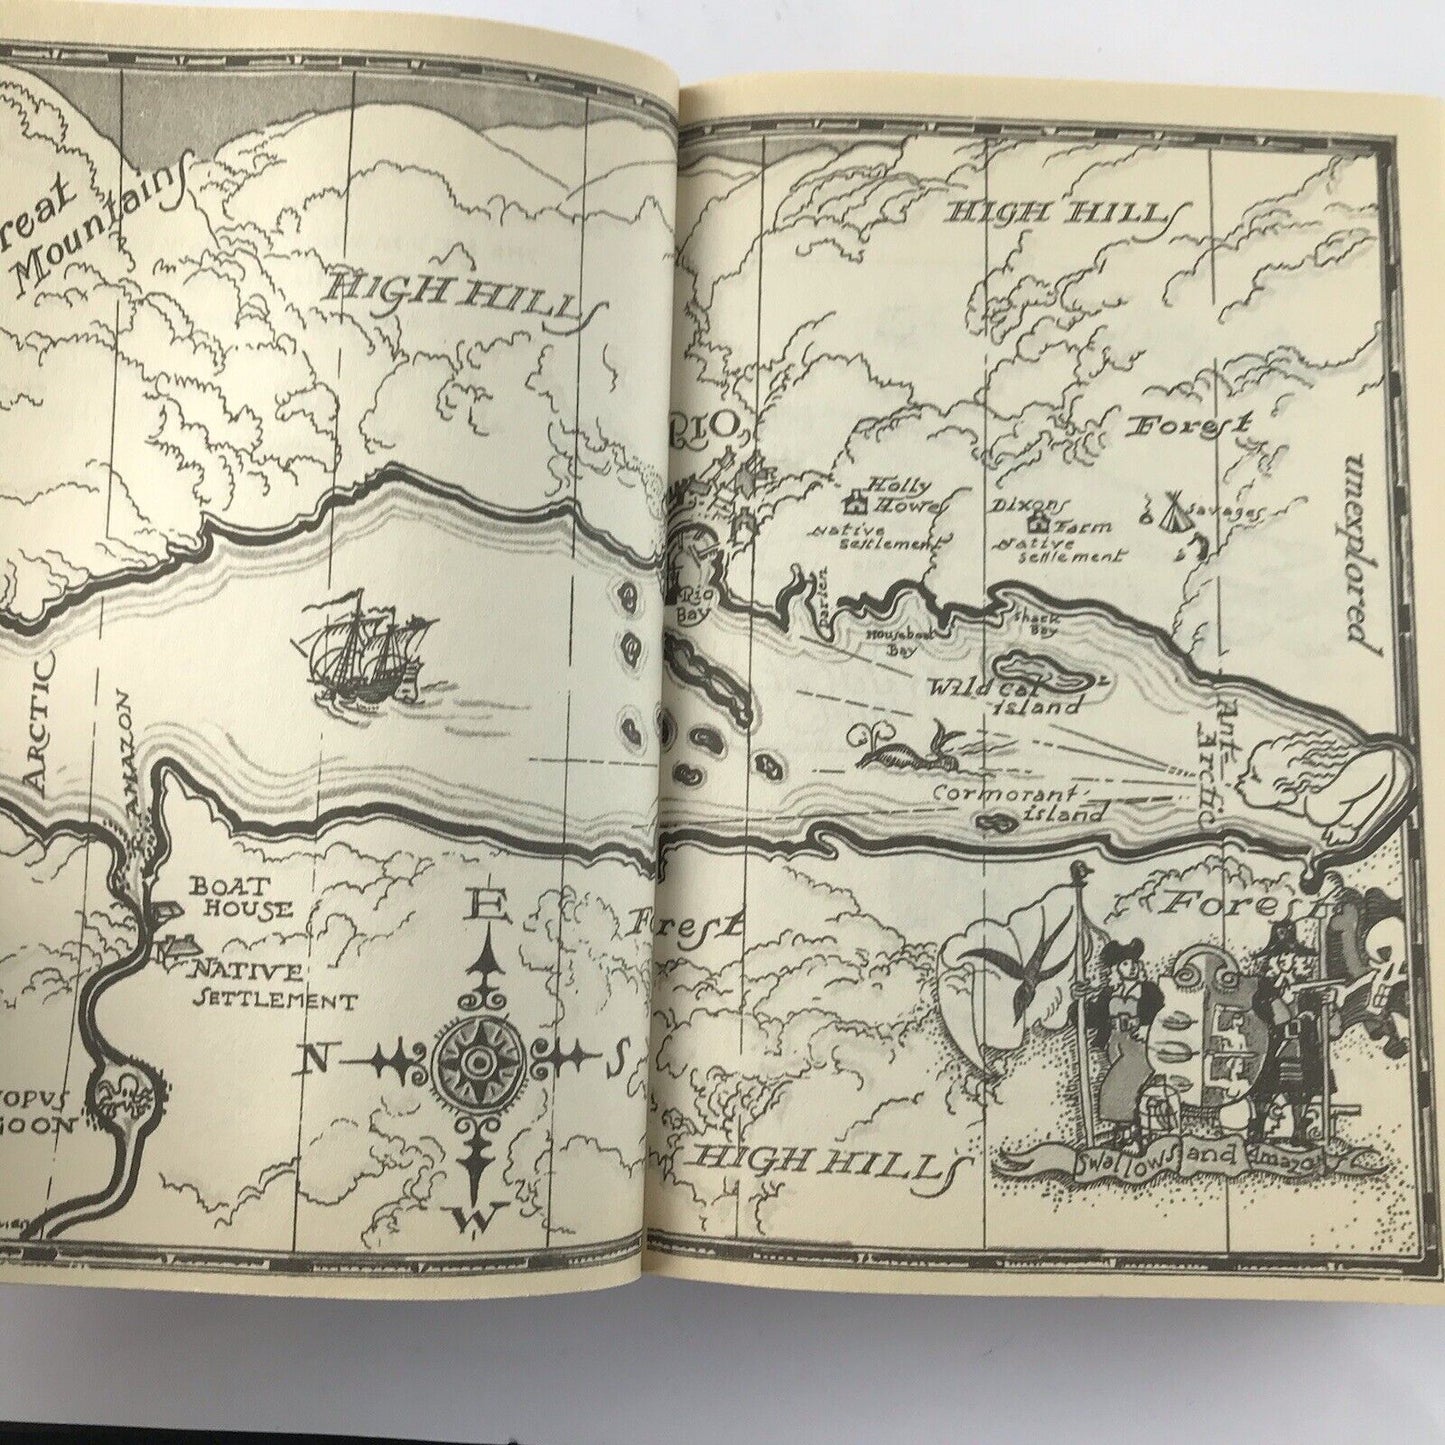 reat
Mountains
HIGH HILLS
ARCTIC
R. AMAZON
BOAT
HOUSE
NATIVE
SETTLEMENT
OPUS
OON
E
N
S
W
HIGH HILLS
RIO
Forest
unexplored
Holly
Howe
Native
Settlement
Dixons
Farm
Native
Settlement
Savages
Rio
Bay
Darien
Houseboat
Bay
Shark
Bay
Wild Cat
island
Cormorant
island
Ant-
Arctic
Forest
Forest
HIGH HILLS
Swallows and Amazo